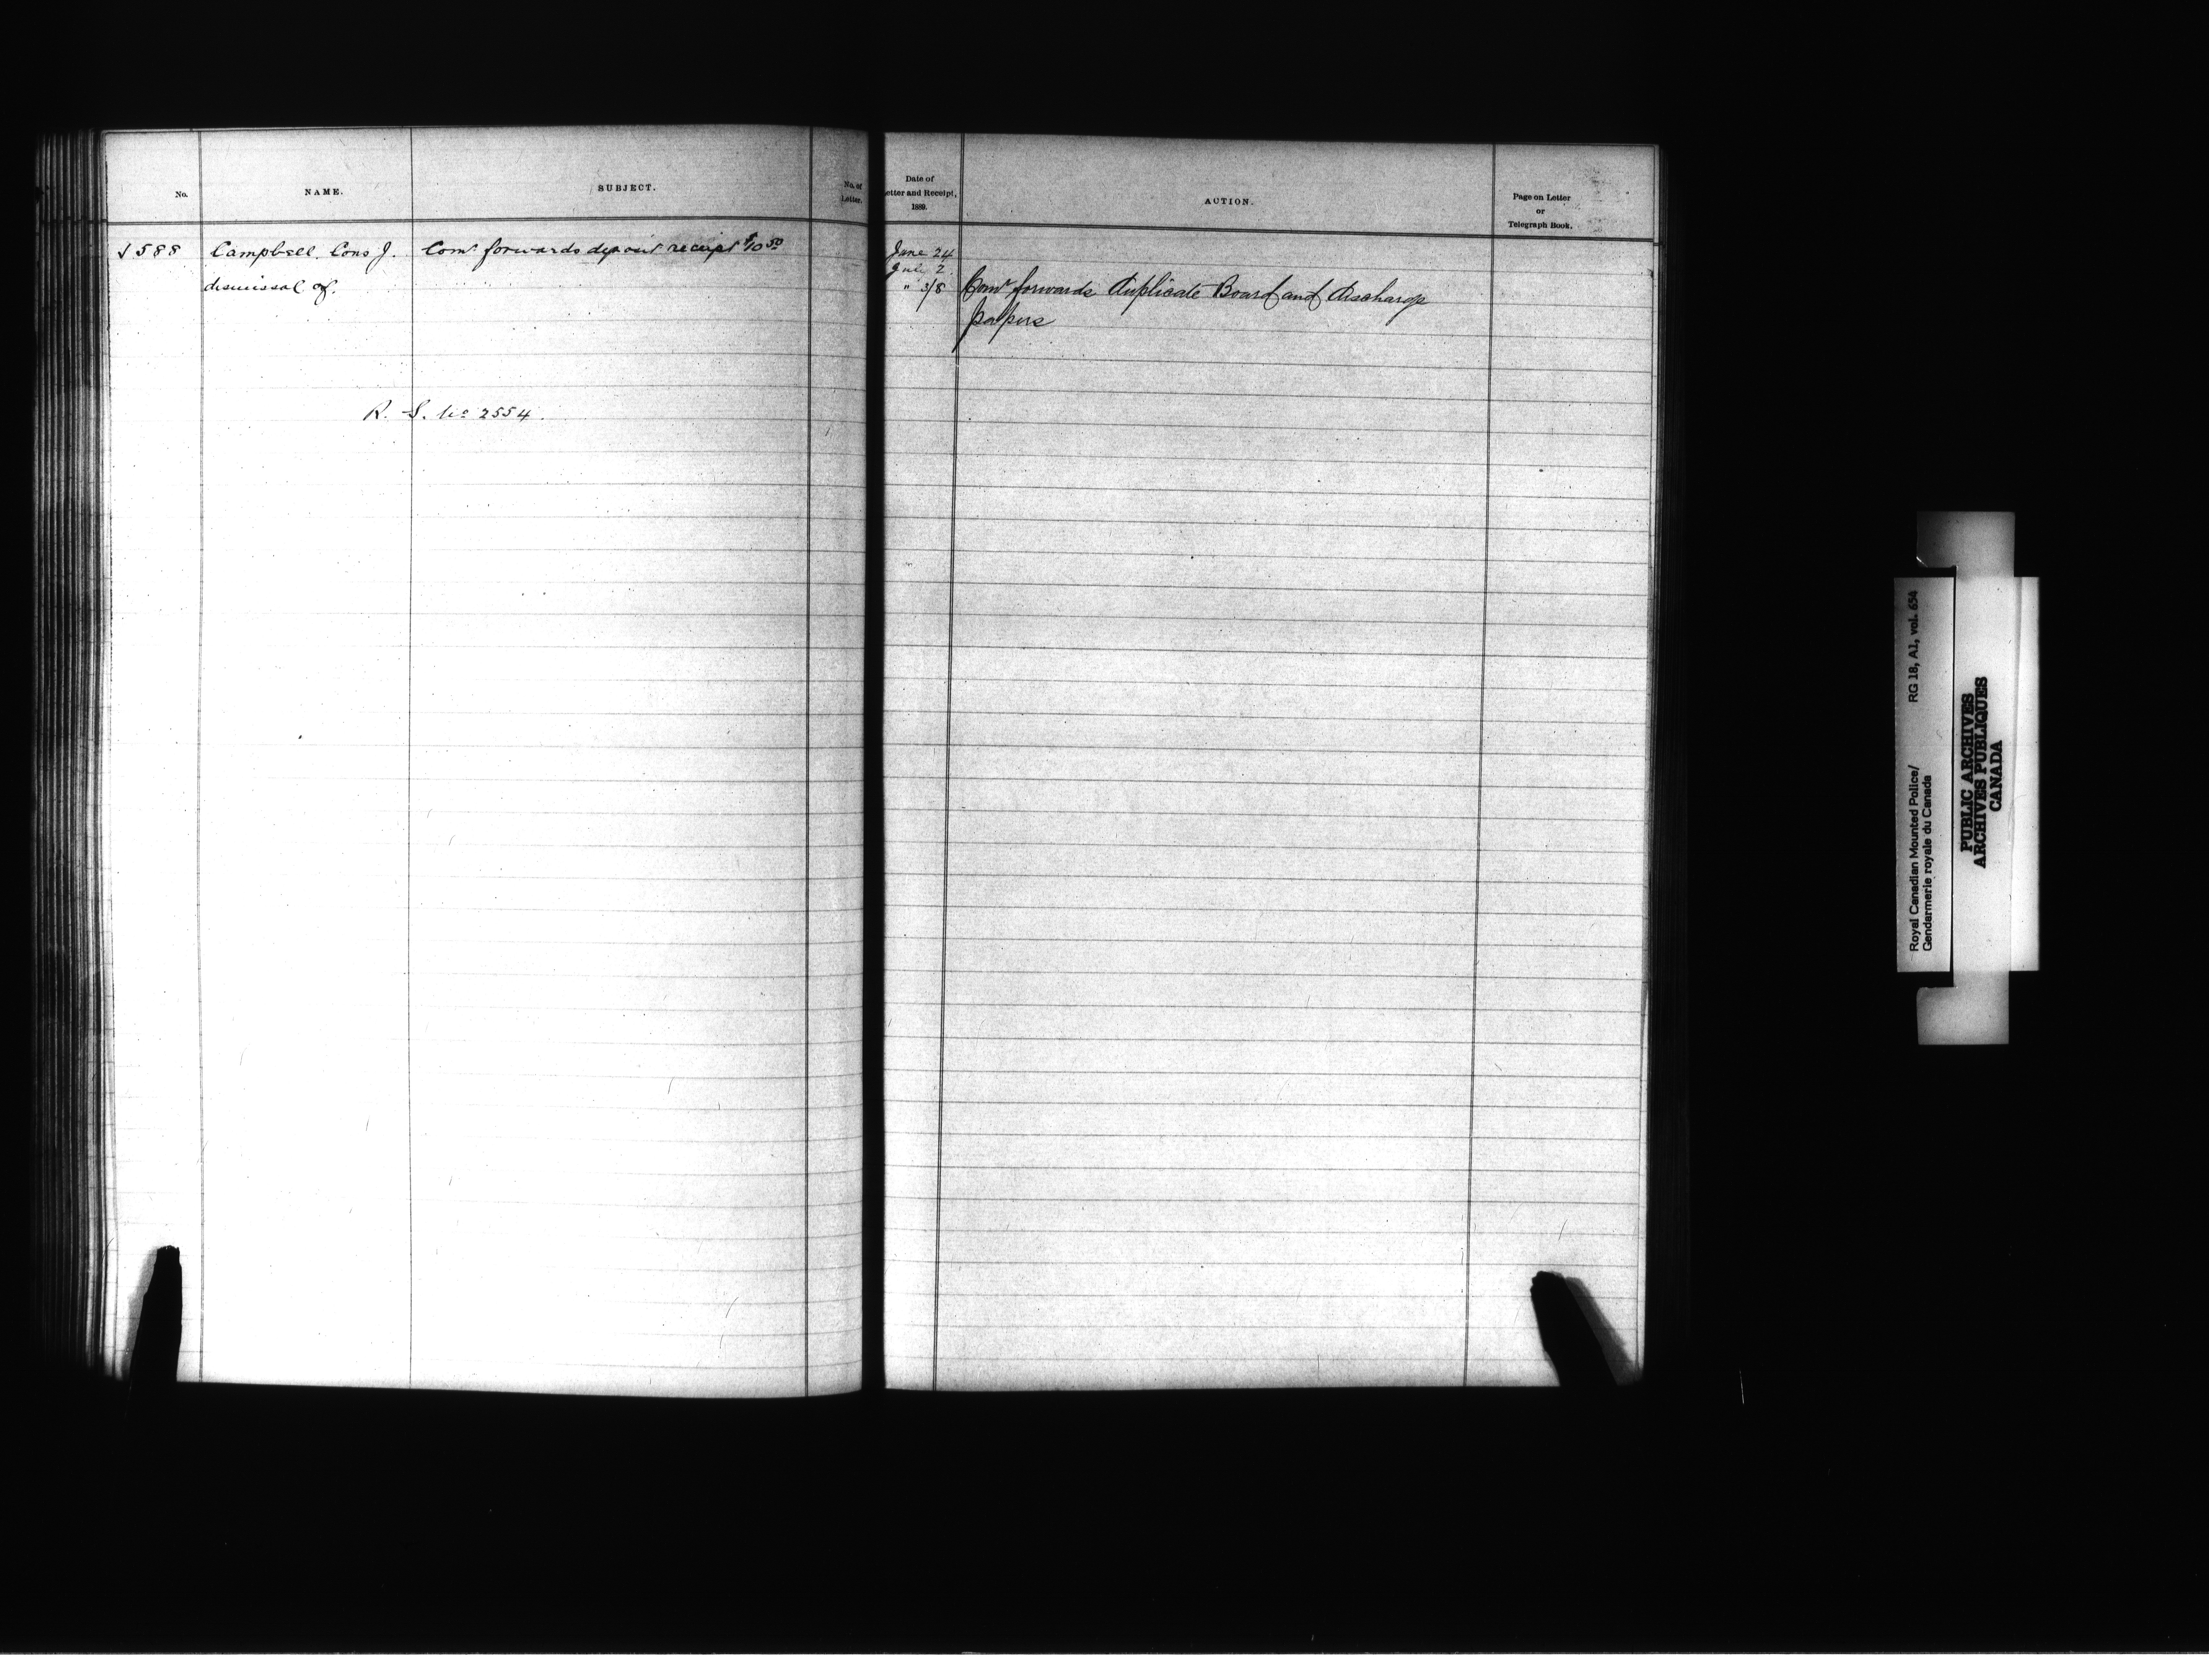 No.
NAME.
SUBJECT.
No. of
Letter.
588
Campbell, Cons J.
Comr forwards deposit receipt $10 50
dismissal of.
R. S. No 2554.
Date of
Letter and Receipt,
1889.
ACTION.
Page on Letter
or
Telegraph Book.
June 24
July 2
" 3/8 Comr forwards Duplicate Board and discharge
papers
Royal Canadian Mounted Police/ RG 18, A1, vol. 654
Gendarmerie royale du Canada
PUBLIC ARCHIVES
ARCHIVES PUBLIQUES
CANADA